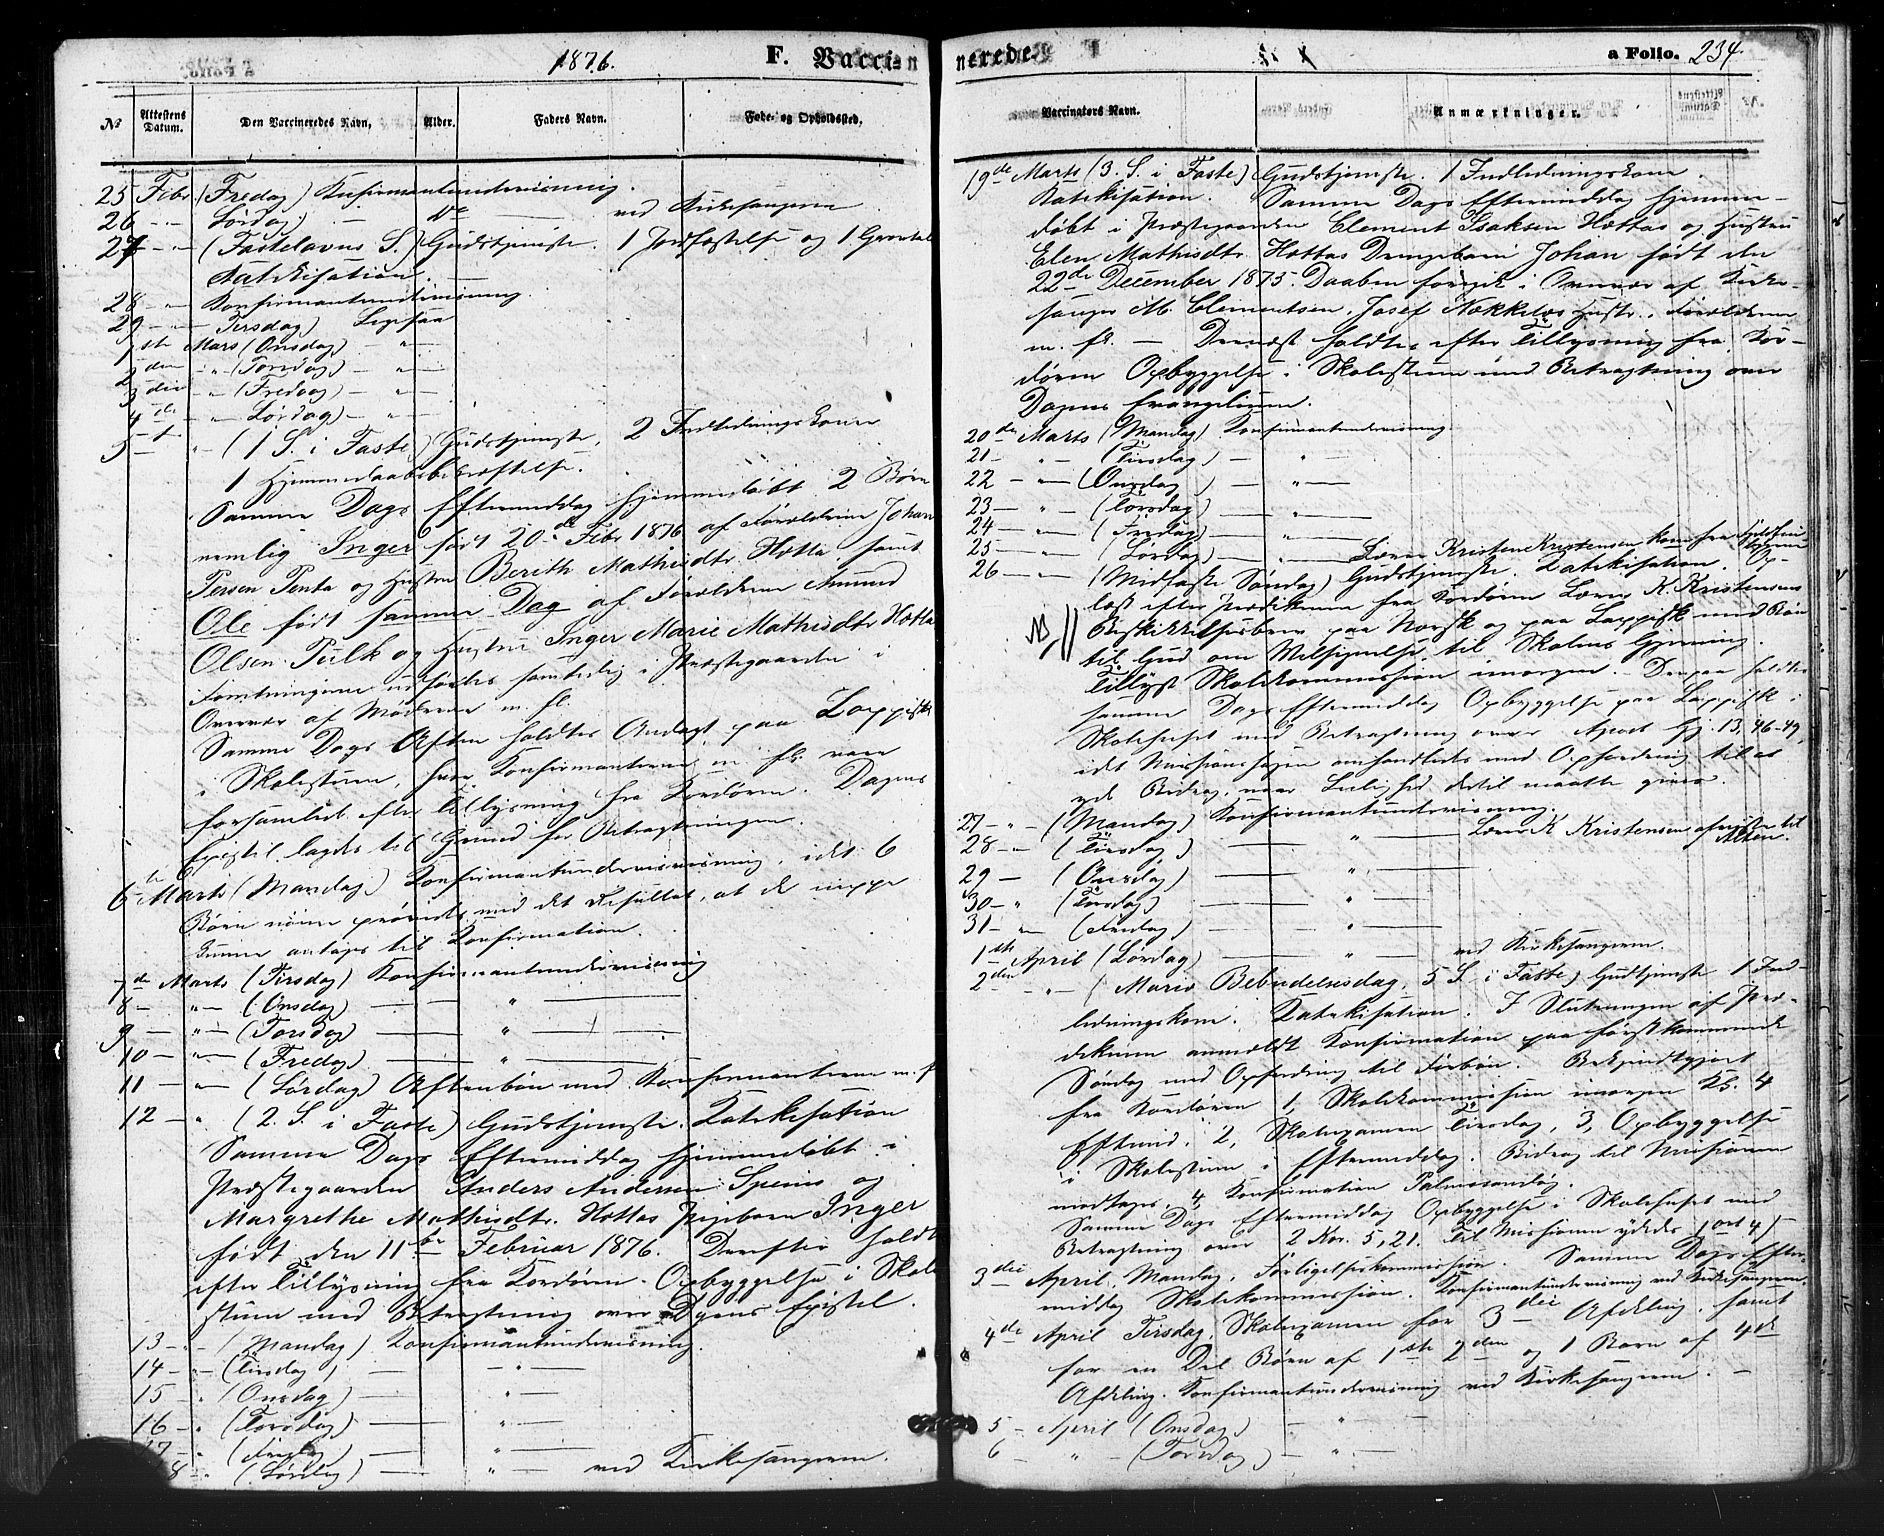 1876.
F. Vaccinerede
a Folio. 234
№
Attestens Datum.
Den Vaccineredes Navn,
Alder.
Faders Navn.
Føde- og Opholdssted.
Vaccinators Navn.
Anmærkninger.
25 Febr. (Fredag) Konfirmantundervisning.
26 " – Lørdag) – Do – ved Kirkesangeren
27 " – (Fastelavns S.) Gudstjeneste. 1 Jordfæstelse og 1 Gravtale
Katekisation.
28 " – Konfirmantundervisning.
29 " – Tirsdag)
1ste Mars (Onsdag) – " –
2den " – (Torsdag) – " –
3die " – (Fredag) – " –
4de – " – Lørdag) – " –
5te " – (1 S. i Faste) Gudstjeneste, 2 Indledningskoner
1 Hjemmedaabsbekræftelse.
Samme Dags Eftermiddag hjemmedøbt 2 Børn
nemlig Inger født 20de Febr. 1876 af Forældrene Johan
Persen Penta og Hustru Berith Mathisdtr. Hætta samt
Ole født samme Dag af Forældrene Amund
Olsen Pulk og Hustru Inger Marie Mathisdtr Hætta
Forretningerne udførtes samtidig i Præstegaarden i
Overvær af Mødrene m. fl.
Samme Dags Aften holdtes Andagt paa Lappisk
i Skolestuen, hvor Konfirmanterne m. fl. vare
forsamlede efter Tillysning fra Kordøren. Dagens
Epistel lagdes til Grund for Betragtningen.
6te Marts (Mandag) Konfirmantundervisning, idet 6
Børn nøiere prøvedes med det Resultat, at de neppe
kunne antages til Konfirmation.
7de Marts (Tirsdag) Konfirmantundervisning
8 – " – (Onsdag) – " –
9 – " – (Torsdag) – " –
10 – " – (Fredag) – " –
11 – " – (Lørdag) Aftenbøn med Konfirmanterne m. f
12 – " (2. S. i Faste) Gudstjeneste. Katekisation
Samme Dags Eftermiddag hjemmedøbt i
Præstegaarden Anders Andersen Speins og
Margrethe Mathisdtr. Hættas Pigebarn Inger
født den 11te Februar 1876. Derefter holdt
efter Tillysning fra Kordøren. Opbyggelse i Skole
stuen med Betragtning over Dagens Epistel.
13 – " – (Mandag) Konfirmantundervisning.
14 – " (Tirsdag) – " –
15 " (Onsdag) – " –
16 – " (Torsdag) – " –
17 – " (Fredag) – " –
8 " (Lørdag) – " – ved Kirkesangeren.
19de Marts (3. S. i Faste) Gudstjeneste. 1 Indledningskone.
Katekisation. Samme Dags Eftermiddag hjemme-
døbt i Præstegaarden Clement Isaksen Hættas og Hustru
Elen Mathisdtr. Hættas Drengebarn Johan født den
22de December 1875. Daaben foregik i Overvær af Kirke-
sanger M. Clementsen, Josef Nækkelæs Hustr., Forældrene
m. fl. – Dernæst holdtes efter Tillysning fra Kor-
døren Opbyggelse i Skolestuen med Betragtning over
Dagens Evangelium.
20de Marts (Mandag) Konfirmantundervisning
21 – " – (Tirsdag) – " –
22 – " – (Onsdag) – " –
23 – " – (Torsdag) – " –
24 – " – (Fredag) – " –
25 – " – (Lørdag) – " – Lærer Kristen Kristensen kom fra
26 – " – (Midfaste Søndag) Gudstjeneste. Katekisation. Op-
læst efter Prædikenen fra Kordøren Lærer K. Kristensens
NB // Beskikkelsesbrev paa Norsk og paa Lappisk med Bøn
til Gud om Velsignelse til Skolens Gjerning.
Tillyst Skolekommission imorgen. Derpaa holdtes
samme Dags Eftermiddag Opbyggelse paa Lappisk i
Skolehuset med Betragtning over Apost Gj. 13, 46-49,
idet Missionssagen omhandledes med Opfordring til at
yde Bidrag, naar Leilighed dertil maatte gives.
27 – " – (Mandag) Konfirmantundervisning.
28 – " (Tirsdag) – " – Lærer K Kristensen afreiste til Alten.
29 – (Onsdag) – " –
30 – " (Torsdag) – " –
31 – " (Fredag) – " –
1ste April (Lørdag) – " – ved Kirkesangeren.
2den – " – (Mariæ Bebudelsesdag, 5 S. i Faste) Gudstjeneste 1 Ind-
ledningskone. Katekisation. I Slutningen af Præ-
dikenen anmeldt Konfirmation paa førstkommende
Søndag med Opfordring til Forbøn. Bekjendtgjort
fra Kordøren 1, Skolekommission imorgen Kl. 4
Eftmid. 2, Skolexamen Tirsdag, 3, Opbyggelse
i Skolestuen i Eftermiddag. Bidrag til Missionen
modtages. 4, Konfirmation Palmesøndag.
Samme Dags Eftermiddag Opbyggelse i Skolehuset med
Betragtning over 2 Kor. 5, 21. Til Missionen ydedes 1 ort 4 ẞ
3die April, Mandag, Forligelseskommission. Samme Dags Efter-
middag Skolekommission. Konfirmantundervisning ved Kirkesangeren.
4de April Tirsdag. Skolexamen for 3die Afdeling, samt
for en Del Børn af 1ste 2den og 1 Barn af 4de
Afdeling. Konfirmantundervisning ved Kirkesangeren. –
5 – April (Onsdag) – " –
6 " – (Torsdag) – " –